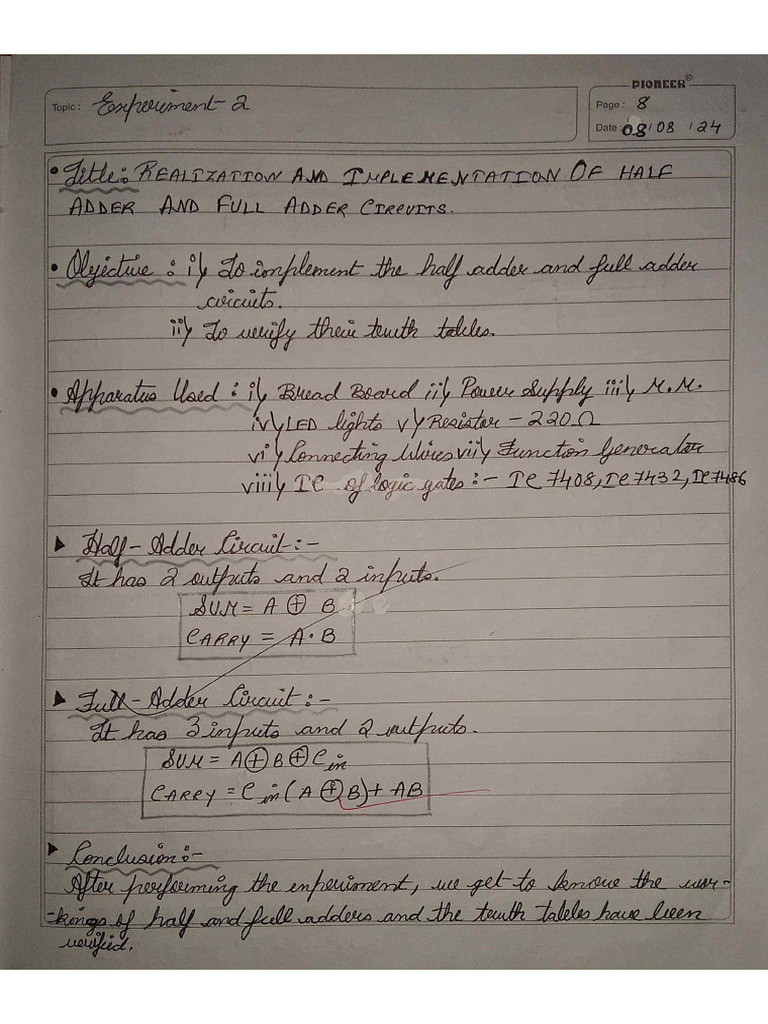 PIONEER®
Topic: Experiment-2
Page: 8
Date: 08/08/24
• Title: REALIZATION AND IMPLEMENTATION OF HALF
ADDER AND FULL ADDER CIRCUITS.
• Objective: i) To implement the half adder and full adder
circuits.
ii) To verify their truth tables.
• Apparatus Used: i) Bread Board ii) Power Supply iii) M.M.
iv) LED lights v) Resistor - 220Ω
vi) Connecting Wires vii) Function Generator
viii) IC of logic gates:- IC 7408, IC 7432, IC 7486
▶ Half-Adder Circuit:-
It has 2 outputs and 2 inputs.
SUM = A ⊕ B
CARRY = A·B
▶ Full-Adder Circuit:-
It has 3 inputs and 2 outputs.
SUM = A⊕B⊕Cin
CARRY = Cin(A⊕B)+AB
▶ Conclusion:-
After performing the experiment, we get to know the wor-
-kings of half and full adders and the truth tables have been
verified.